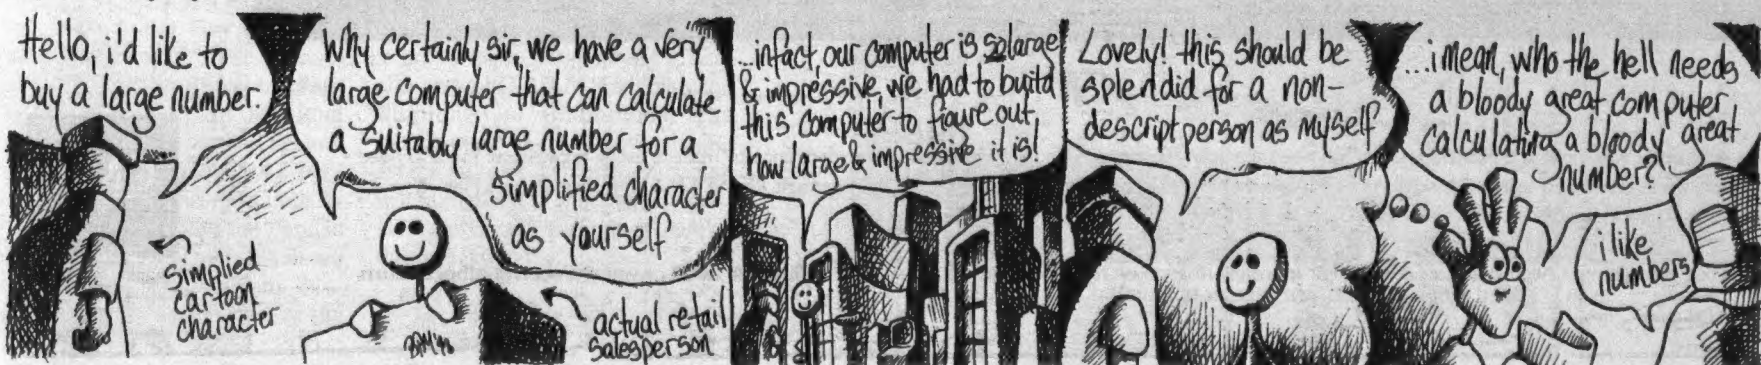 Hello, i'd like to
buy a large number.
simplied
cartoon
character
Why certainly sir, we have a very
large computer that can calculate
a suitably large number for a
simplified character
as yourself
actual retail
salesperson
...infact, our computer is so large
& impressive we had to build
this computer to figure out,
how large & impressive it is!
Lovely! this should be
splendid for a non-
descript person as myself
...i mean, who the hell needs
a bloody great computer
calculating a bloody great
number?
i like
numbers